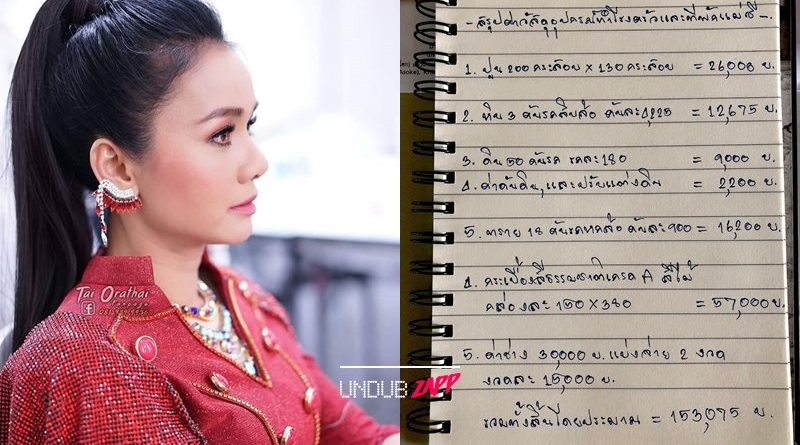 Tai Orathai
Fanpage
UNDUBZAPP
- สรุปค่าวัสดุอุปกรณ์ทำโรงครัวและที่พักแม่ชี -.
1. ปูน 200 กระสอบ × 130 กระสอบ = 26,000 บ.
2. หิน 3 คันรถสิบล้อ คันละ 4,225 = 12,675 บ.
3. ดิน 50 คันรถ รถละ 180 = 9,000 บ.
4. ค่าดันดิน, และปรับแต่งดิน = 2,200 บ.
5. ทราย 18 คันรถหกล้อ คันละ 900 = 16,200 บ.
4. กระเบื้องสีธรรมชาติเกรด A สีไม้
กล่องละ 150 × 380 = 57,000 บ.
5. ค่าช่าง 30,000 บ. แบ่งจ่าย 2 งวด
งวดละ 15,000 บ.
รวมทั้งสิ้นโดยประมาณ = 153,075 บ.